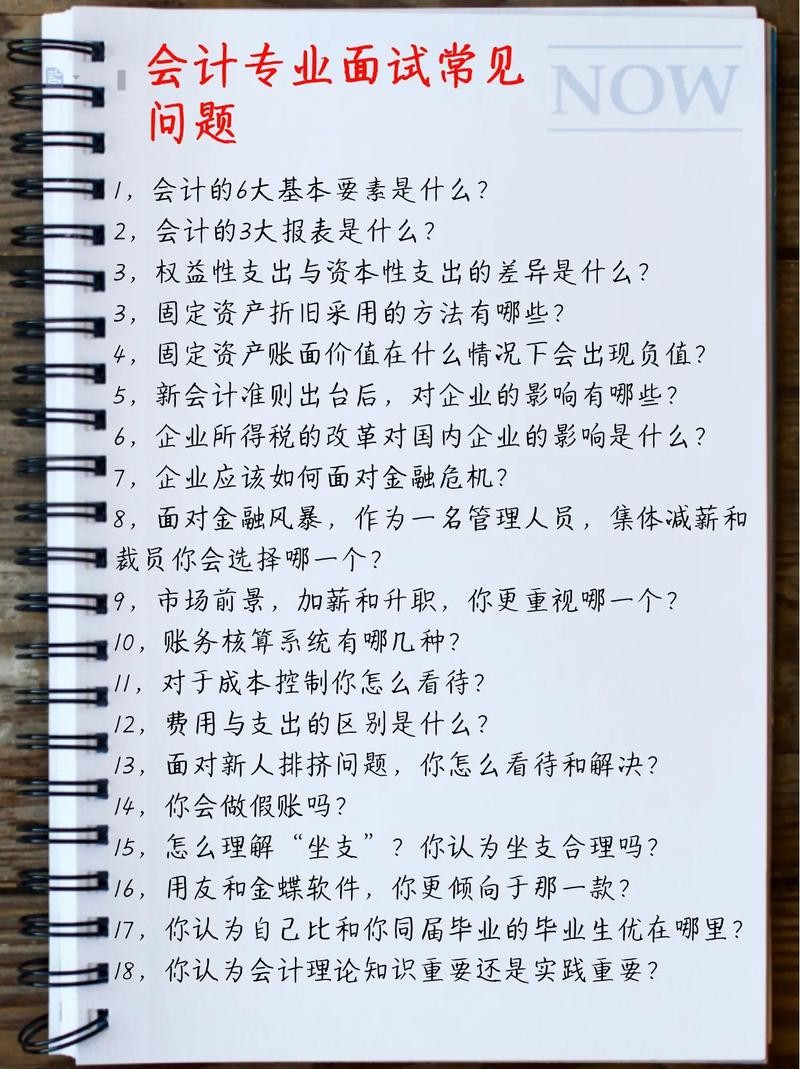 会计专业面试常见
问题
NOW
1，会计的6大基本要素是什么？
2，会计的3大报表是什么？
3，权益性支出与资本性支出的差异是什么？
3，固定资产折旧采用的方法有哪些？
4，固定资产账面价值在什么情况下会出现负值？
5，新会计准则出台后，对企业的影响有哪些？
6，企业所得税的改革对国内企业的影响是什么？
7，企业应该如何面对金融危机？
8，面对金融风暴，作为一名管理人员，集体减薪和
裁员你会选择哪一个？
9，市场前景，加薪和升职，你更重视哪一个？
10，账务核算系统有哪几种？
11，对于成本控制你怎么看待？
12，费用与支出的区别是什么？
13，面对新人排挤问题，你怎么看待和解决？
14，你会做假账吗？
15，怎么理解“坐支”？你认为坐支合理吗？
16，用友和金蝶软件，你更倾向于那一款？
17，你认为自己比和你同届毕业的毕业生优在哪里？
18，你认为会计理论知识重要还是实践重要？